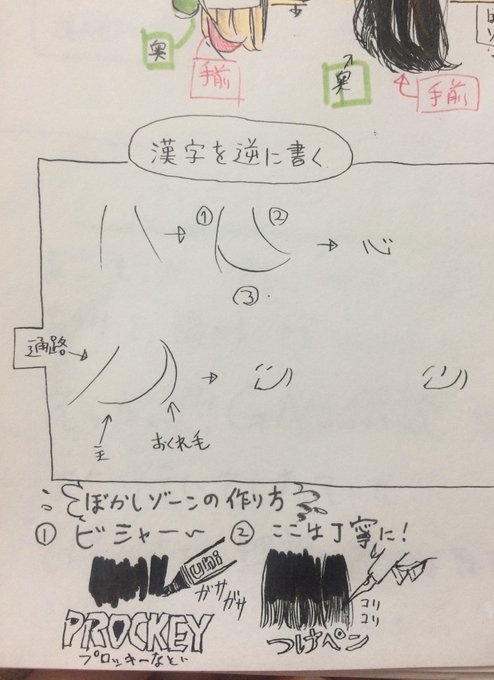 奥
手前
奥
手前
漢字を逆に書く
① ②
③
心
通路
主
おくれ毛
ぼかしゾーンの作り方
① ビシャー〜 ② ここは丁寧に!
uni
ガサガサ
コリコリ
PROCKEY
プロッキーなど
つけペン